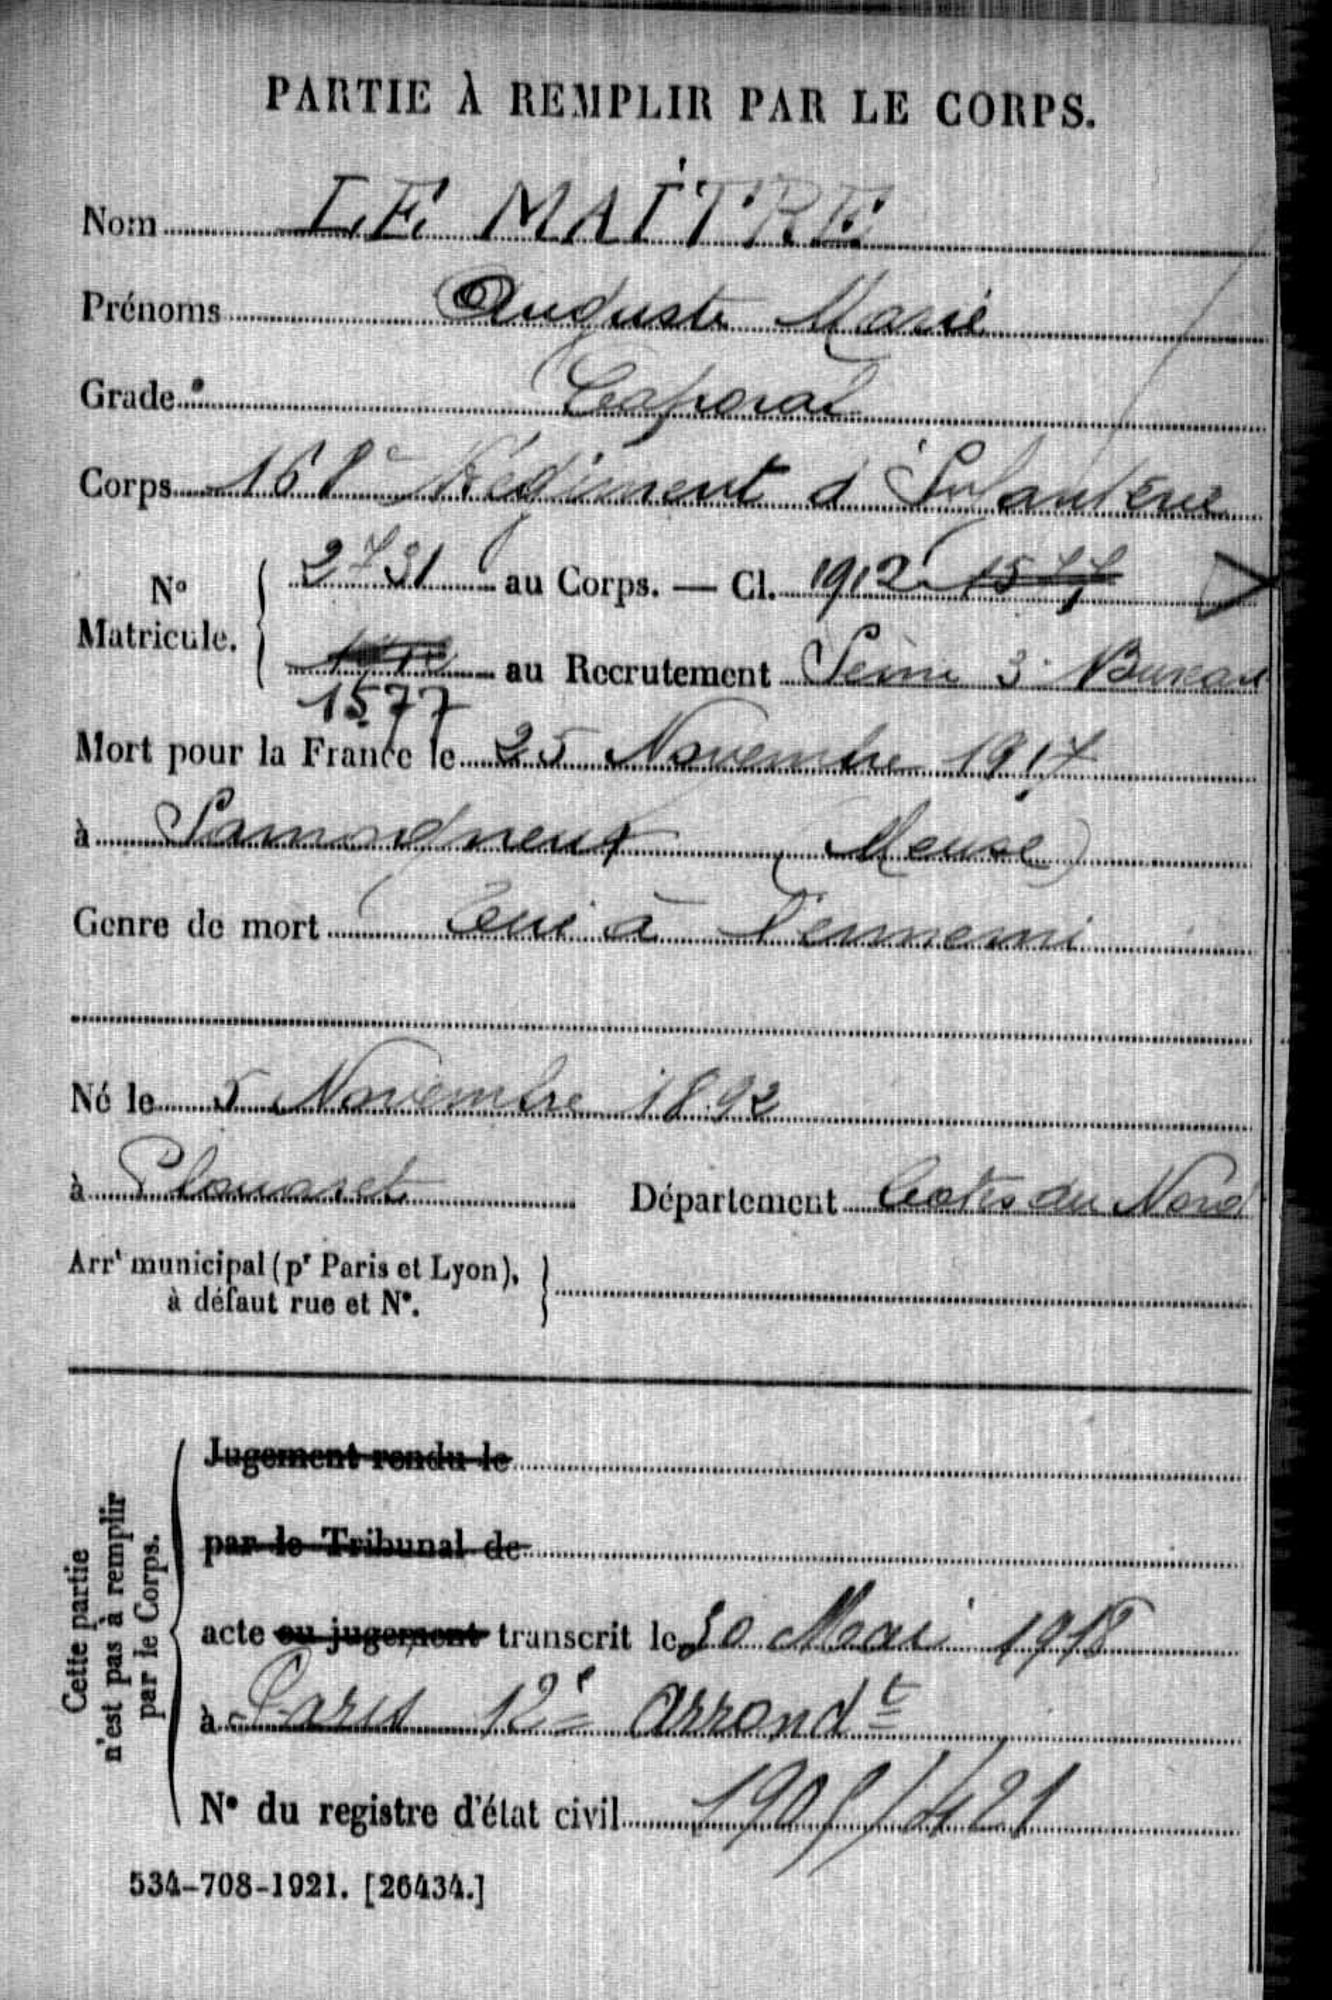 PARTIE À REMPLIR PAR LE CORPS.
Nom LE MAÎTRE
Prénoms Auguste Marie
Grade Caporal
Corps 168e Régiment d'Infanterie
N° Matricule. 2731 au Corps. — Cl. 1912 1577
au Recrutement Seine 3e Bureau
1577
Mort pour la France le 25 Novembre 1917
à Samogneux (Meuse)
Genre de mort Tué à l'ennemi
Né le 5 Novembre 1892
à Plouaret Département Cotes du Nord
Arrt municipal (pr Paris et Lyon),
à défaut rue et N°.
Cette partie
n'est pas à remplir
par le Corps.
Jugement rendu le
par le Tribunal de
acte ou jugement transcrit le 30 Mai 1918
à Paris 12e Arrondt
N° du registre d'état civil
534-708-1921. [26434.]